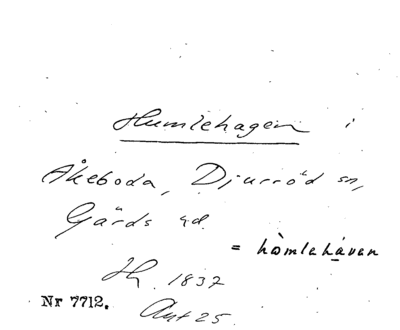 Humlehagen i
Åkeboda, Djurröd sn,
Gärds hd.
= hòmlehàven
Hh 1837
Nr 7712. Ant 25